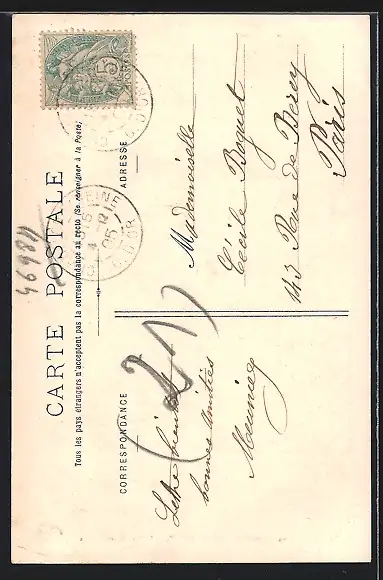 CARTE POSTALE
Tous les pays étrangers n'acceptent pas la correspondance au recto (Se renseigner à la Poste)
CORRESPONDANCE
ADRESSE
Lettre bientôt
bonnes amitiés
Mademoiselle
Cécile Boquet
143 Rue de Bercy
Paris
46984
(21)
5
05
D'OR